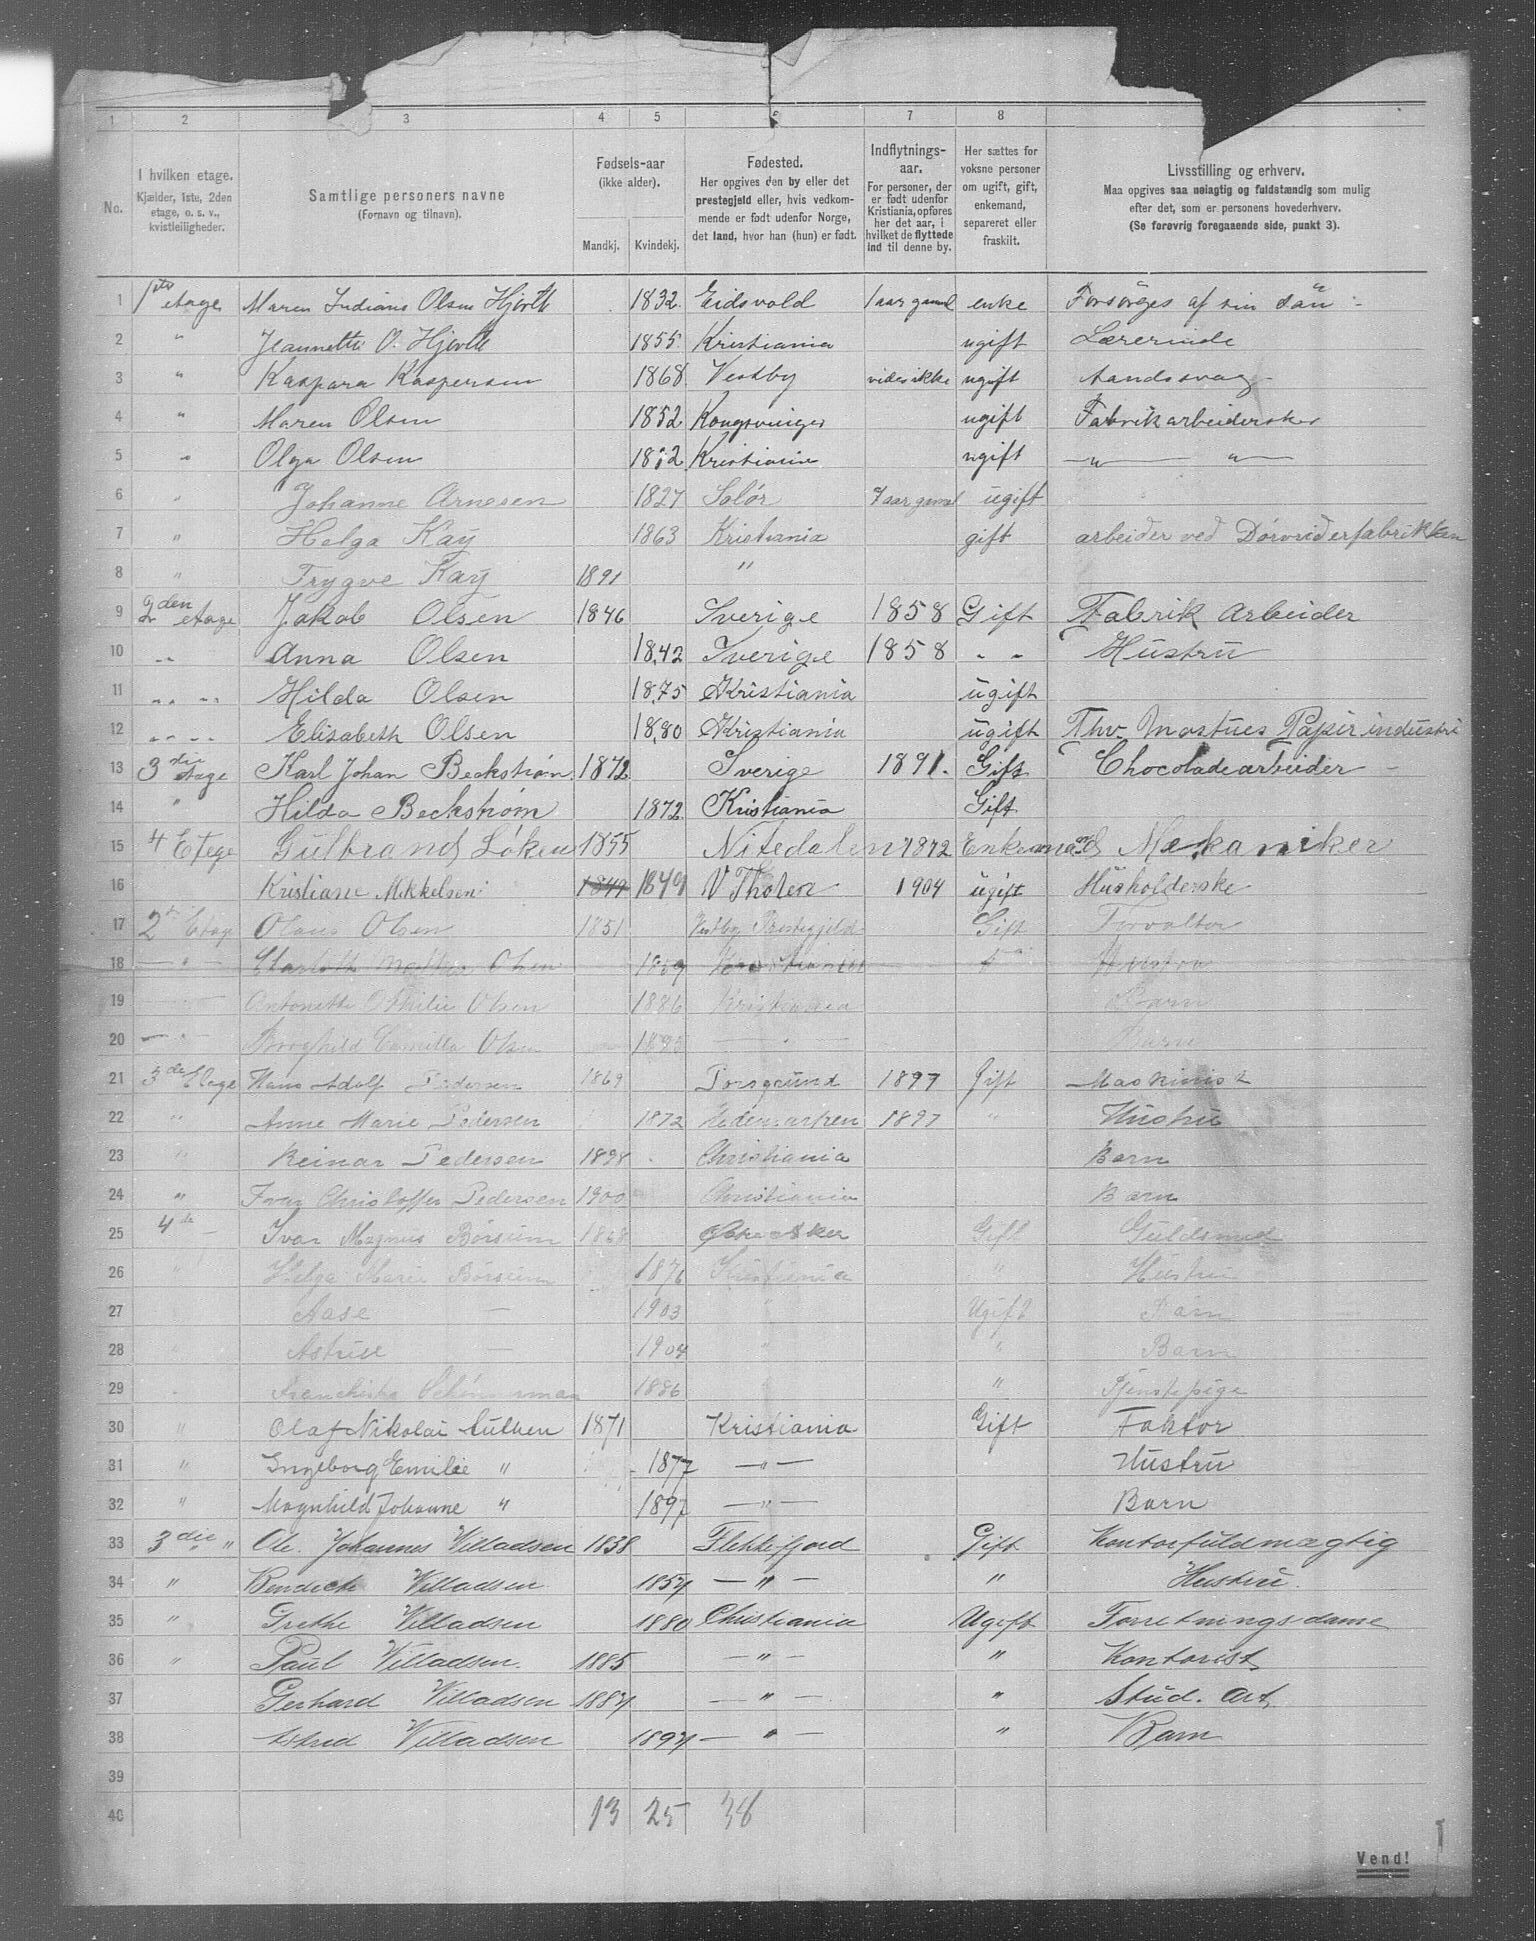 1 2 3 4 5 6 7 8
No. I hvilken etage. Kjælder, 1ste, 2den etage, o. s. v., kvistleiligheder. Samtlige personers navne (Fornavn og tilnavn). Fødsels-aar (ikke alder). Mandkj. Kvindekj. Fødested. Her opgives den by eller det prestegjeld eller, hvis vedkommende er født udenfor Norge, det land, hvor han (hun) er født. Indflytnings-aar. For personer, der er født udenfor Kristiania, opføres her det aar, i hvilket de flyttede ind til denne by. Her sættes for voksne personer om ugift, gift, enkemand, separeret eller fraskilt. Livsstilling og erhverv. Maa opgives saa nøiagtig og fuldstændig som mulig efter det, som er personens hovederhverv. (Se forøvrig foregaaende side, punkt 3).
1 1ste etage Maren Indiane Olsen Hjorth 1832. Eidsvold 1 aar gaml enke Forsørges af sin sön
2 " Jeannette O. Hjorth 1855 Kristiania ugift Lærerinde
3 " Kaspara Kaspersen 1868 Vestby vides ikke ugift Aandssvag
4 " Maren Olsen 1852 Kongsvinger ugift Fabrikarbeiderske
5 " Olga Olsen Kristiania ugift — " — " —
6 " Johanne Arnesen 1827 Solør 7 aar gamel ugift
7 " Helga Kay 1863 Kristiania gift arbeider ved Dorvriderfabrikken
8 " Trygve Kay 1891 "
9 2den etage Jakob Olsen 1846 Sverige 1858 Gift Fabrik arbeider
10 " Anna Olsen 1842 Sverige 1858 " " Hustru
11 " " Hilda Olsen 1875 Kristiania ugift
12 " " Elisabeth Olsen 1880 Kristiania ugift Thv Mastues Papirindustri
13 3die etage Karl Johan Beckstrøm 1872 Sverige 1891. Gift Chocoladearbeider
14 " Hilda Beckstrøm 1872 Kristiania Gift
15 4 Etege Gulbrand Løken 1855 Nitedalen 1872 Enkemand Mekaniker
16 Kristiane Mikkelsen 1849 1849 V Thoten 1904 ugift Husholderske
17 2 Etage Olaus Olsen 1851 Vestby Prestegjeld Gift Forvalter
18 — " — Charlotte Olsen Kristiania Hustru
19 Antonette Othilie Olsen 1886 Kristiania Barn
20 — " — Borghild Camilla Olsen — " — Barn
21 3de Etage Hans Adolf Pedersen 1869 Porsgrund 1897 Gift Maskinist
22 " Anne Marie Pedersen 1872 Hedemarken 1897 " Hustru
23 " Reinar Pedersen 1898 Christiania Barn
24 " Ivar Christoffer Pedersen 1900 Christiania Barn
25 4de — Ivar Magnus Børsum 1868 Østre Aker Gift Guldsmed
26 " Helga Marie Børsum 1876 Kristiania " Hustru
27 Aase — 1903 " Ugift Barn
28 " Astrid — 1904 " " Barn
29 1886 " " Tjenstepige
30 " Olaf Nikolai 1871 Kristiania Gift Faktor
31 " Ingeborg Emilie " 1877 — " — Hustru
32 " Magnhild Johanne " 1897 — " — Barn
33 3die " Ole Johannes Villadsen 1838 Flekkefjord Gift Kontorfuldmægtig
34 " Bendicte Villadsen 1854 — " — " Hustru.
35 " Grethe Villadsen 1880 Christiania Ugift Forretningsdame
36 " Paul Villadsen 1885 — " — " Kontorist
37 Gerhard Villadsen 1887 — " — " Stud. Art.
38 Astrid Villadsen 1897 — " — " Barn
39
40 13 25 38
Vend!